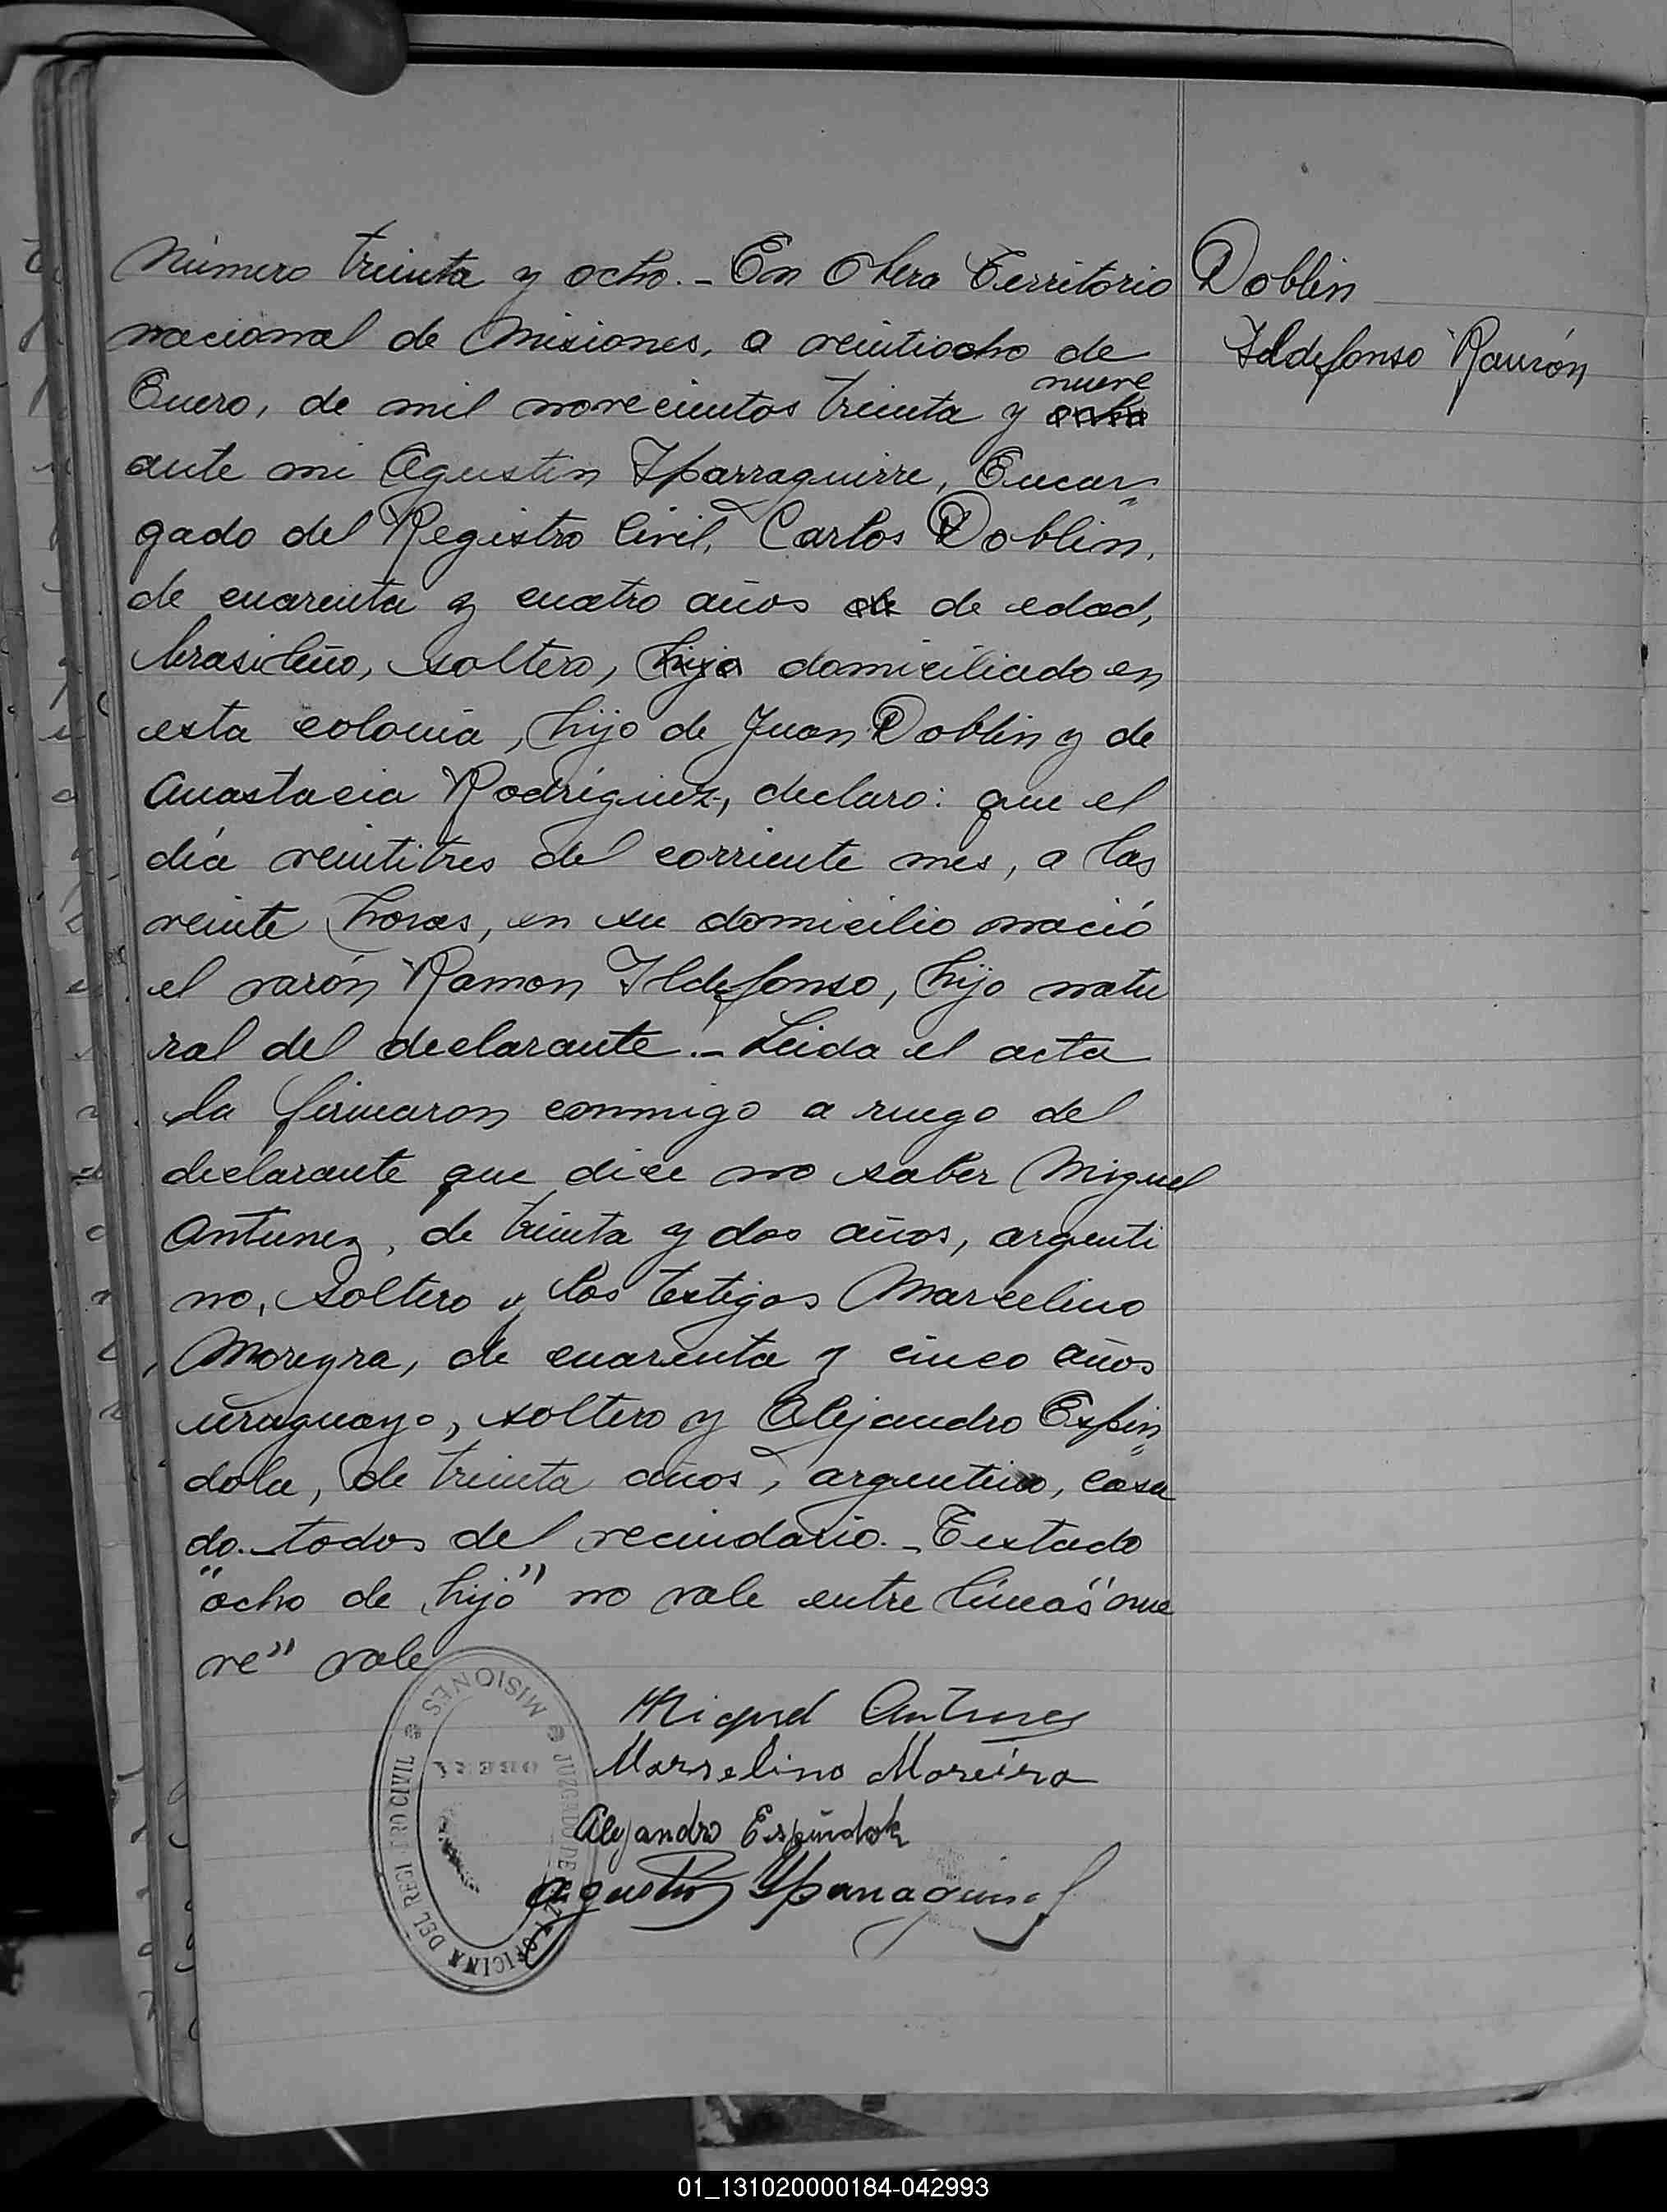 Número treinta y ocho.- En Obera Territorio
nacional de Misiones, a veintiocho de
nueve
Enero, de mil novecientos treinta y ocho
ante mi Agustin Yparraguirre, Encar-
gado del Registro Civil, Carlos Doblin,
de cuarenta y cuatro años de de edad,
brasileño, soltero, hijo domiciliado en
esta colonia, hijo de Juan Doblin y de
Anastacia Rodríguez, declaro: que el
día veintitres del corriente mes, a las
veinte horas, en su domicilio nació
el varón Ramon Ildefonso, hijo natu
ral del declarante.- Leida el acta
la firmaron conmigo a ruego del
declarante que dice no saber Miguel
Antunez, de treinta y dos años, argenti
no, soltero y los testigos Marcelino
Moreyra, de cuarenta y cinco años
uruguayo, soltero y Alejandro Espin
dola, de treinta años, argentino, casa
do.- todos del vecindario.- Testado
"ocho de hijo" no vale entre líneas "nue
ve" vale
Doblin
Ildefonso Ramón
Miguel Antunez
Marselino Moreira
Alejandro Espindola
Agustin Yparraguirre
MISIONES
JUZGADO DE PAZ Y OFICINA DEL REGISTRO CIVIL
01_131020000184-042993